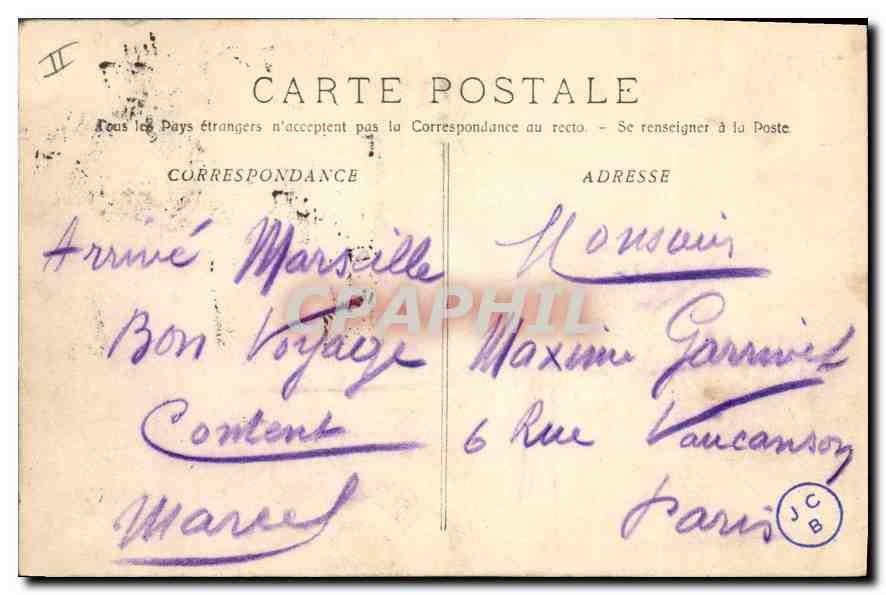 II
CARTE POSTALE
Tous les Pays étrangers n'acceptent pas la Correspondance au recto. - Se renseigner à la Poste.
CORRESPONDANCE
Arrivé Marseille
Bon Voyage
Content
Marcel
ADRESSE
Monsieur
Maxime
6 Rue Vaucanson
Paris
JCB
CPAPHIL